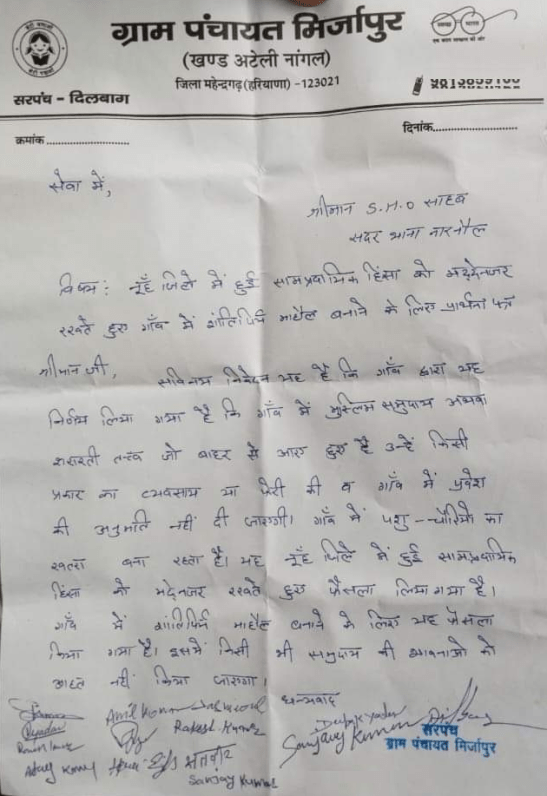 ग्राम पंचायत मिर्जापुर
(खण्ड अटेली नांगल)
जिला महेन्द्रगढ़ (हरियाणा) -123021
सरपंच - दिलबाग
क्रमांक..........................
दिनांक..........................
सेवा में,
श्रीमान S.H.O साहब
सदर थाना नारनौल
विषय : नूँह जिले में हुई साम्प्रदायिक हिंसा को मद्देनजर
रखते हुए गाँव में शांतिप्रिय माहौल बनाने के लिए प्रार्थना पत्र
श्रीमान जी,
सविनय निवेदन यह है कि गाँव द्वारा यह
निर्णय लिया गया है कि गाँव में मुस्लिम समुदाय अथवा
शरारती तत्व जो बाहर से आए हुए है उन्हें किसी
प्रकार का व्यवसाय या फेरी की व गाँव में प्रवेश
की अनुमति नहीं दी जाएगी। गाँव में पशु-चोरियो का
खतरा बना रहता है। यह नूँह जिले में हुई साम्प्रदायिक
हिंसा को मद्देनजर रखते हुए फैसला लिया गया है।
गाँव में शांतिप्रिय माहौल बनाने के लिए यह फैसला
किया गया है। इसमें किसी भी समुदाय की भावनाओ को
आहत नहीं किया जाएगा।
धन्यवाद
Anil Kumar
Rakesh Kumar
Deepak Yadav
Sanjay Kumar
Ajay Kumar
सतवीर
Sanjay Kumar
सरपंच
ग्राम पंचायत मिर्जापुर